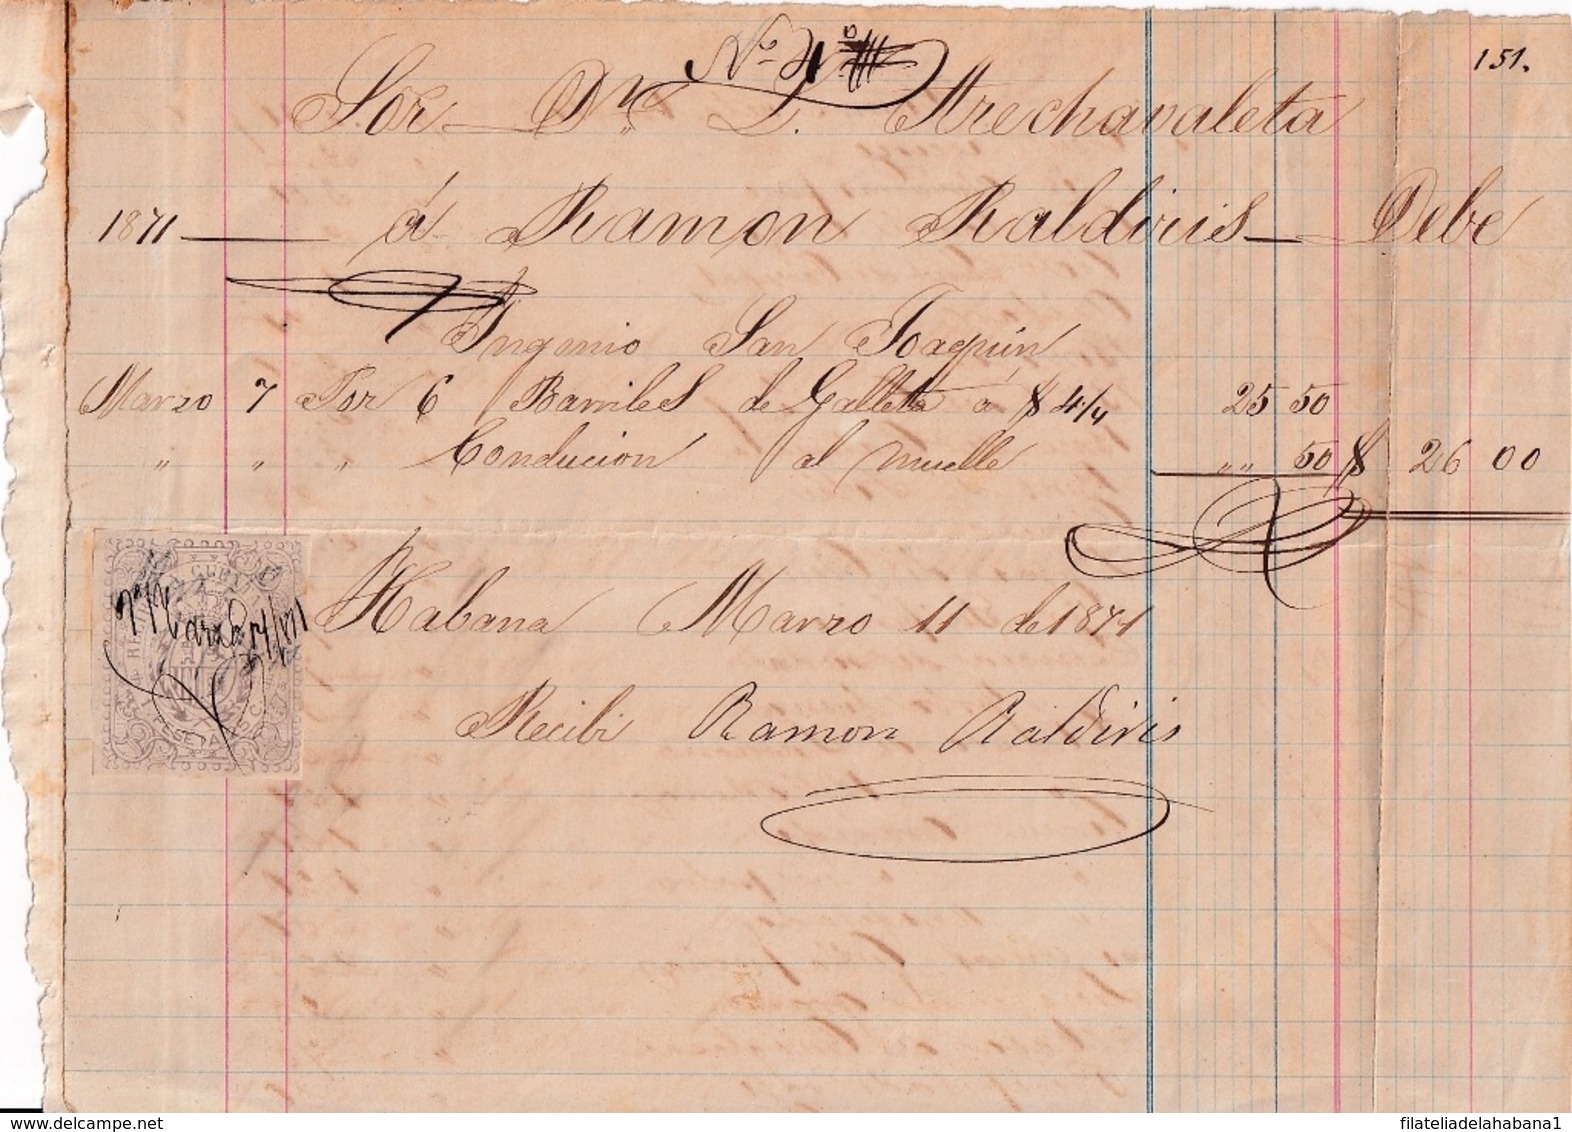 Nº 4º
151.
Sor Dn L. Arechavaleta
1871 á Ramon Raldiris Debe
Ingenio San Joaquín
Marzo 7 Por 6 Barriles de Galleta a $ 4/4 25 50
" " " Conducion al muelle " " 50 $ 26 00
Habana Marzo 11 de 1871
Recibi Ramon Raldiris
filateliadelahabana1